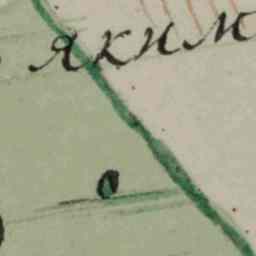 яким
о